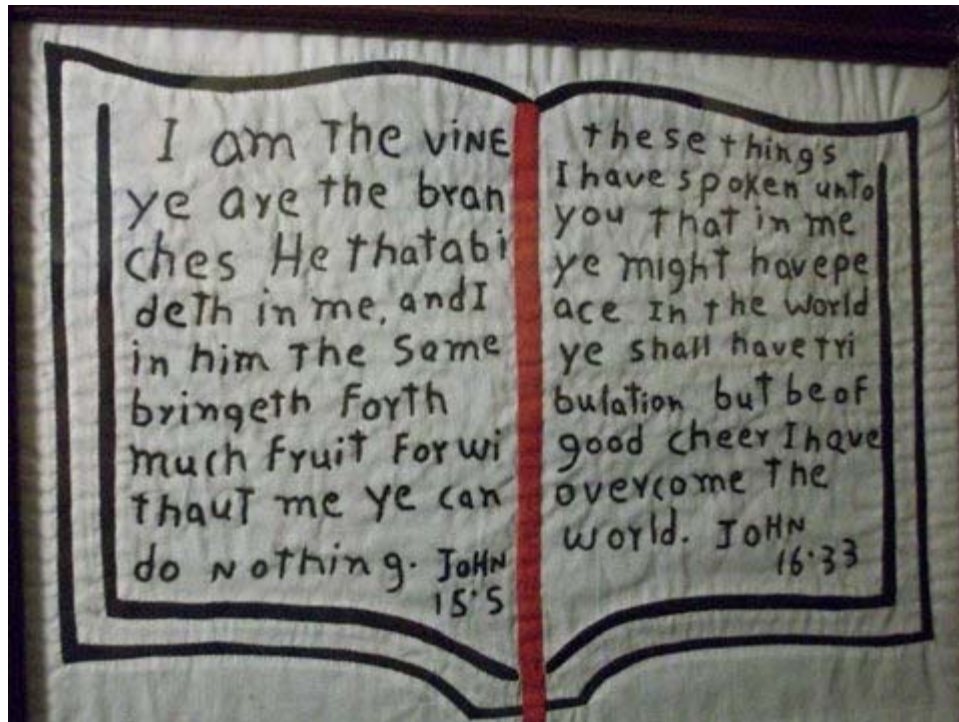 I am The VINE
ye are the bran
ches He thatabi
deTh in me, and I
in him The Same
bringeth Forth
much Fruit For wi
thauT me ye can
do Nothing. JOHN
15:5
these things
I have spoken unto
you That in me
ye might havepe
ace In the World
ye shall have tri
bulation but be of
good cheer I have
overcome The
world. JOHN
16:33